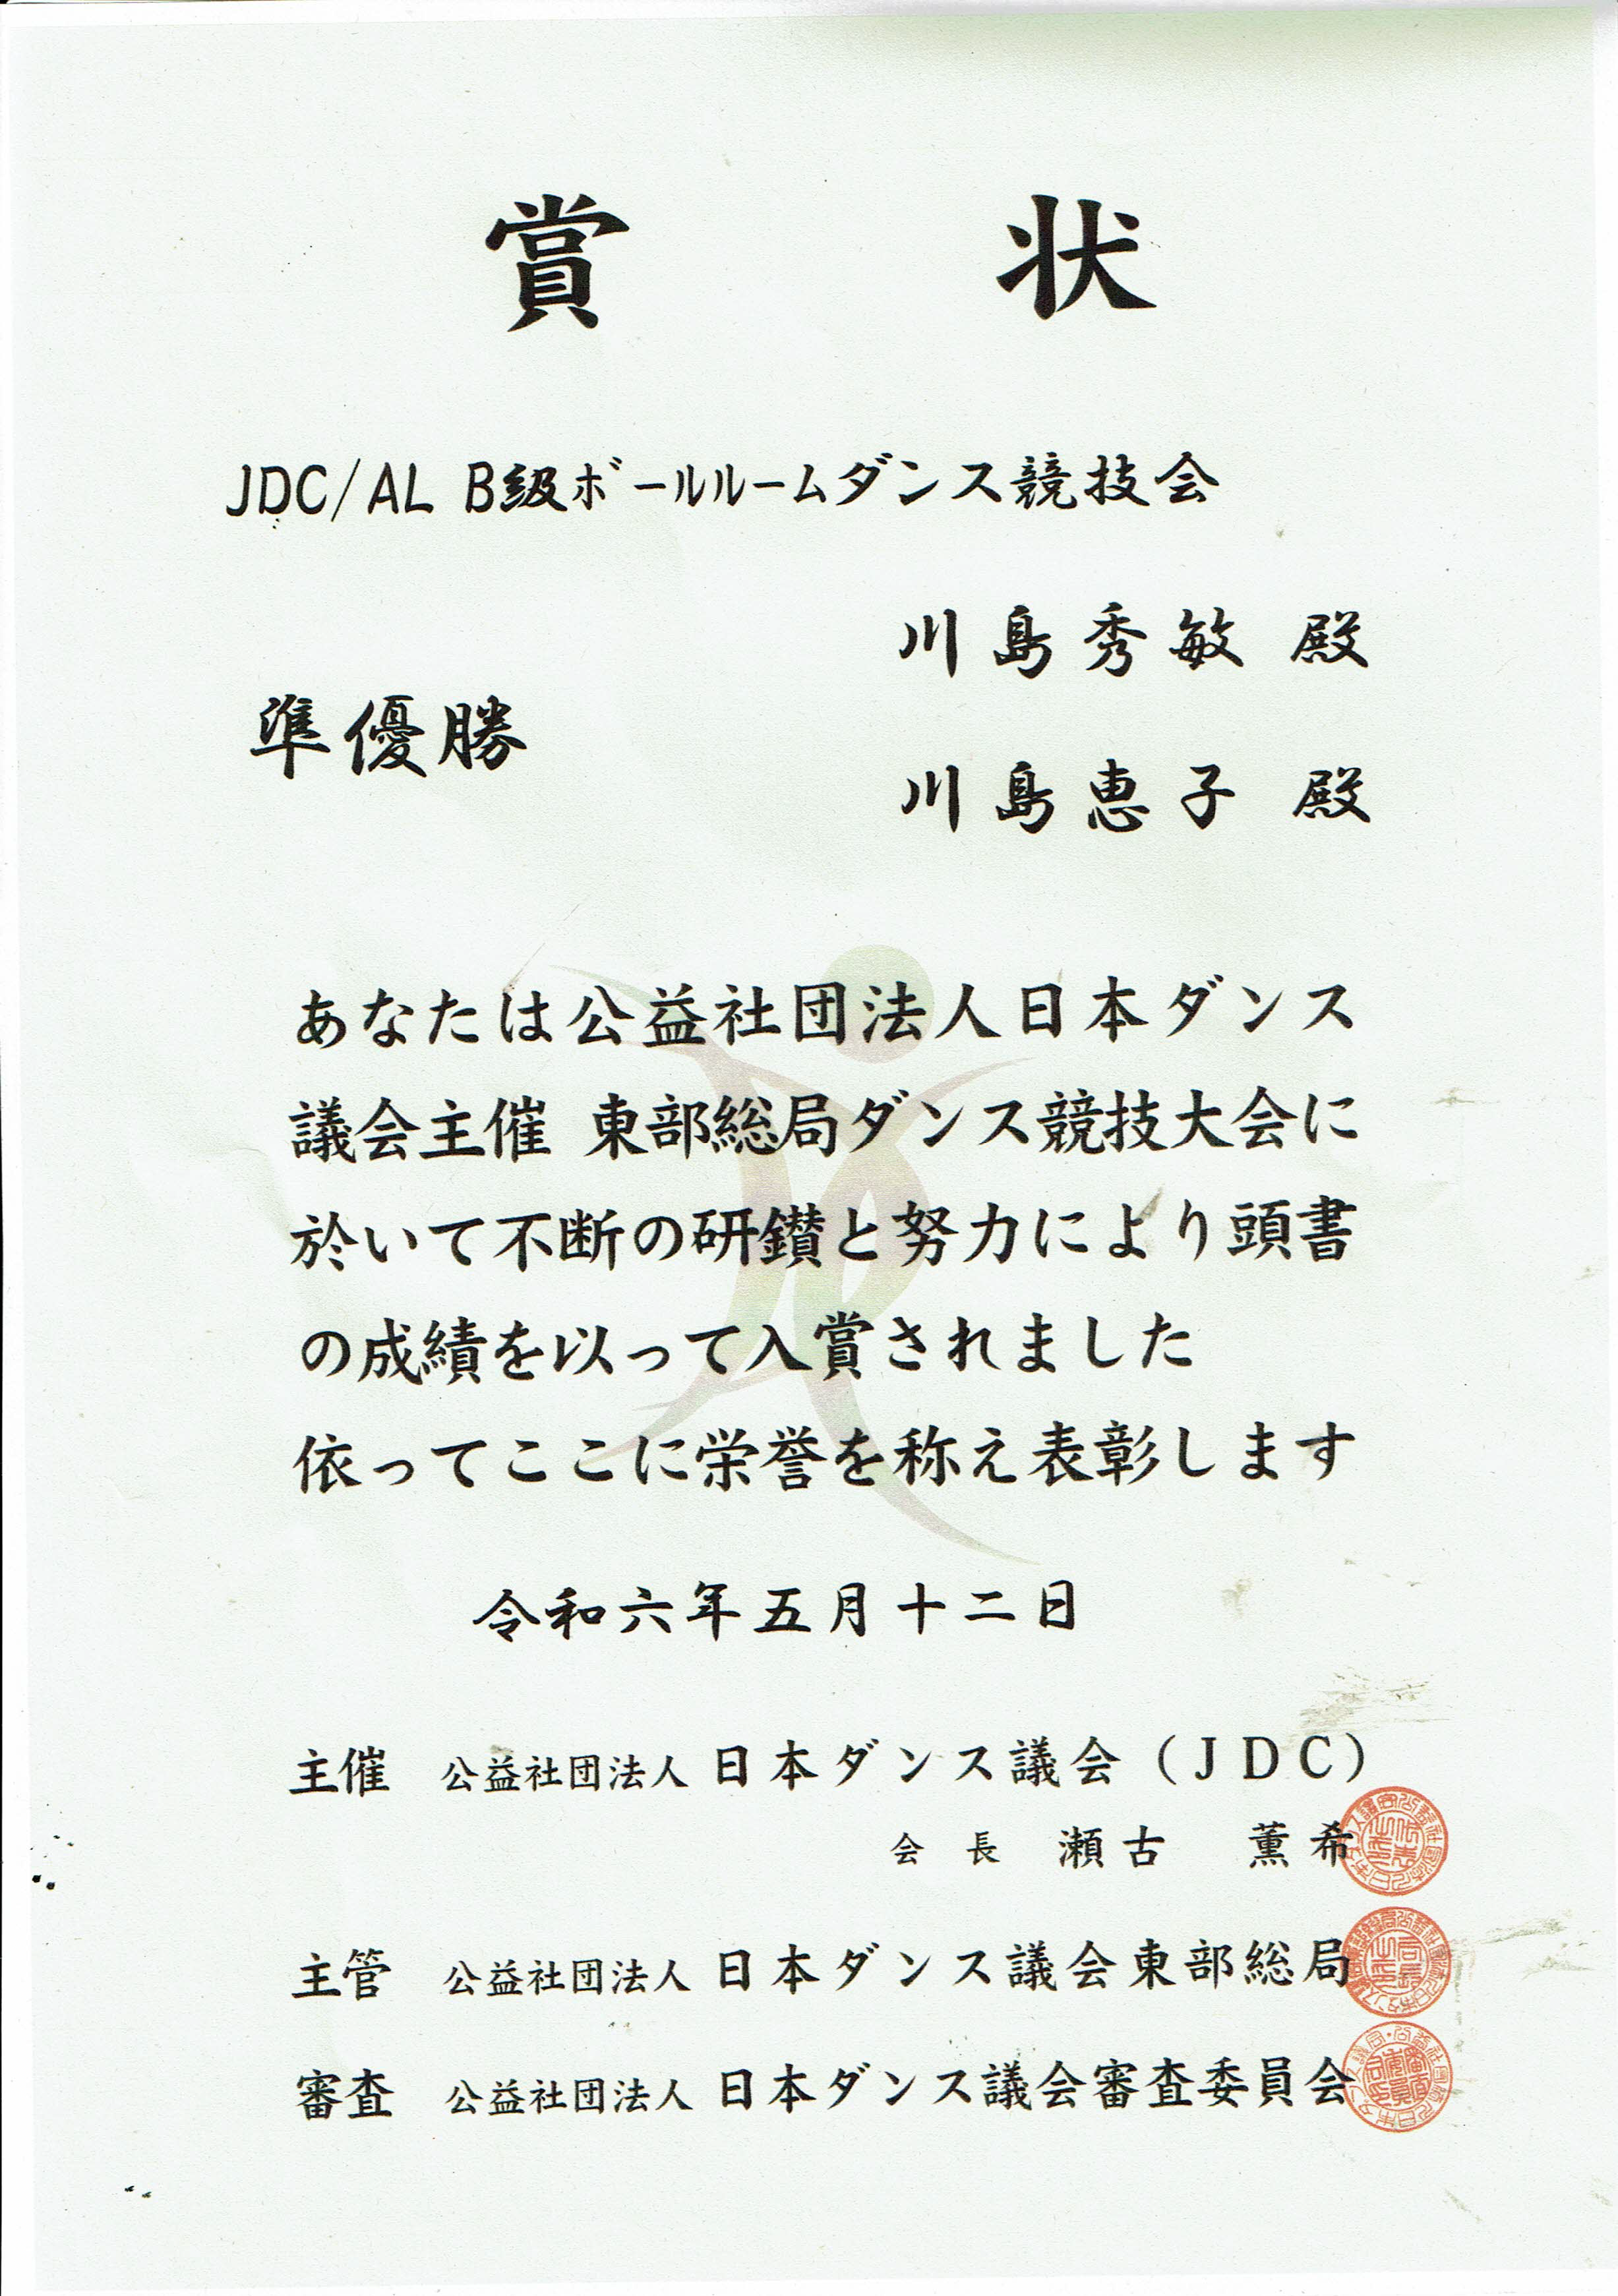 賞状
JDC/AL B級ボールルームダンス競技会
川島秀敏 殿
準優勝
川島恵子 殿
あなたは公益社団法人日本ダンス
議会主催 東部総局ダンス競技大会に
於いて不断の研鑚と努力により頭書
の成績を以って入賞されました
依ってここに栄誉を称え表彰します
令和六年五月十二日
主催 公益社団法人 日本ダンス議会（JDC）
会長 瀬古 薫希
主管 公益社団法人 日本ダンス議会東部総局
審査 公益社団法人 日本ダンス議会審査委員会